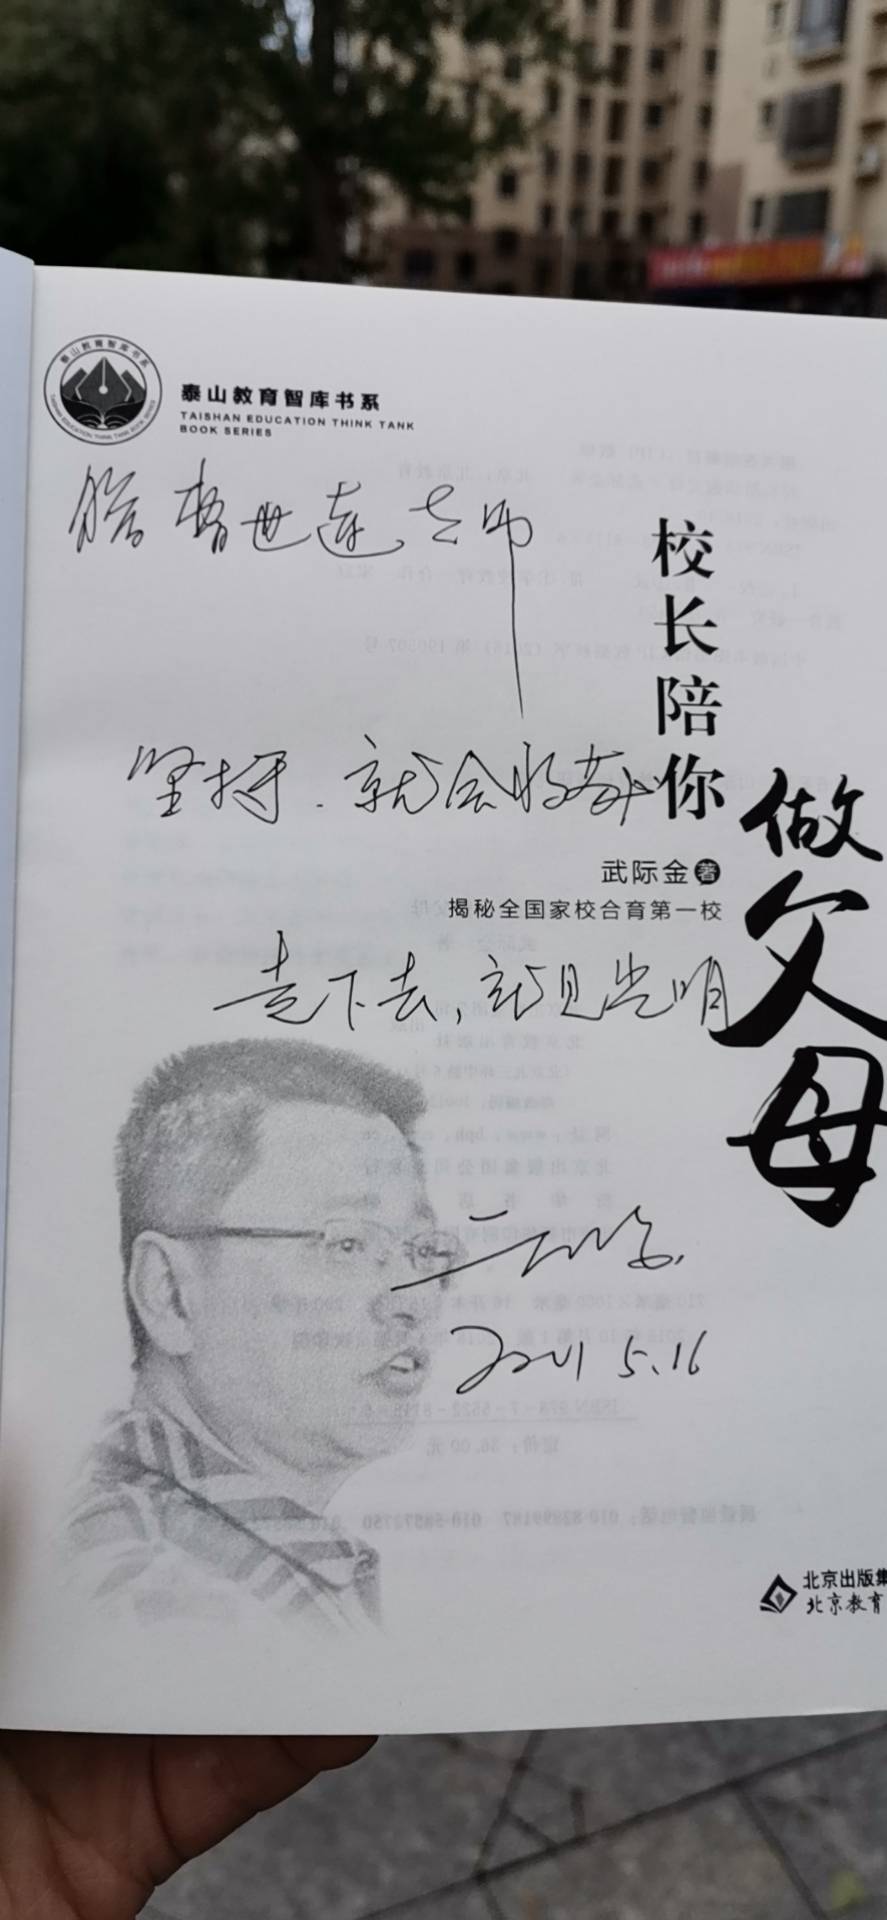 泰山教育智库书系
TAISHAN EDUCATION THINK TANK
BOOK SERIES
世莲老师
校长陪你
做父母
坚持.就会收获
武际金 著
揭秘全国家校合育第一校
走下去,就见光明
2021 5.16
北京出版集
北京教育